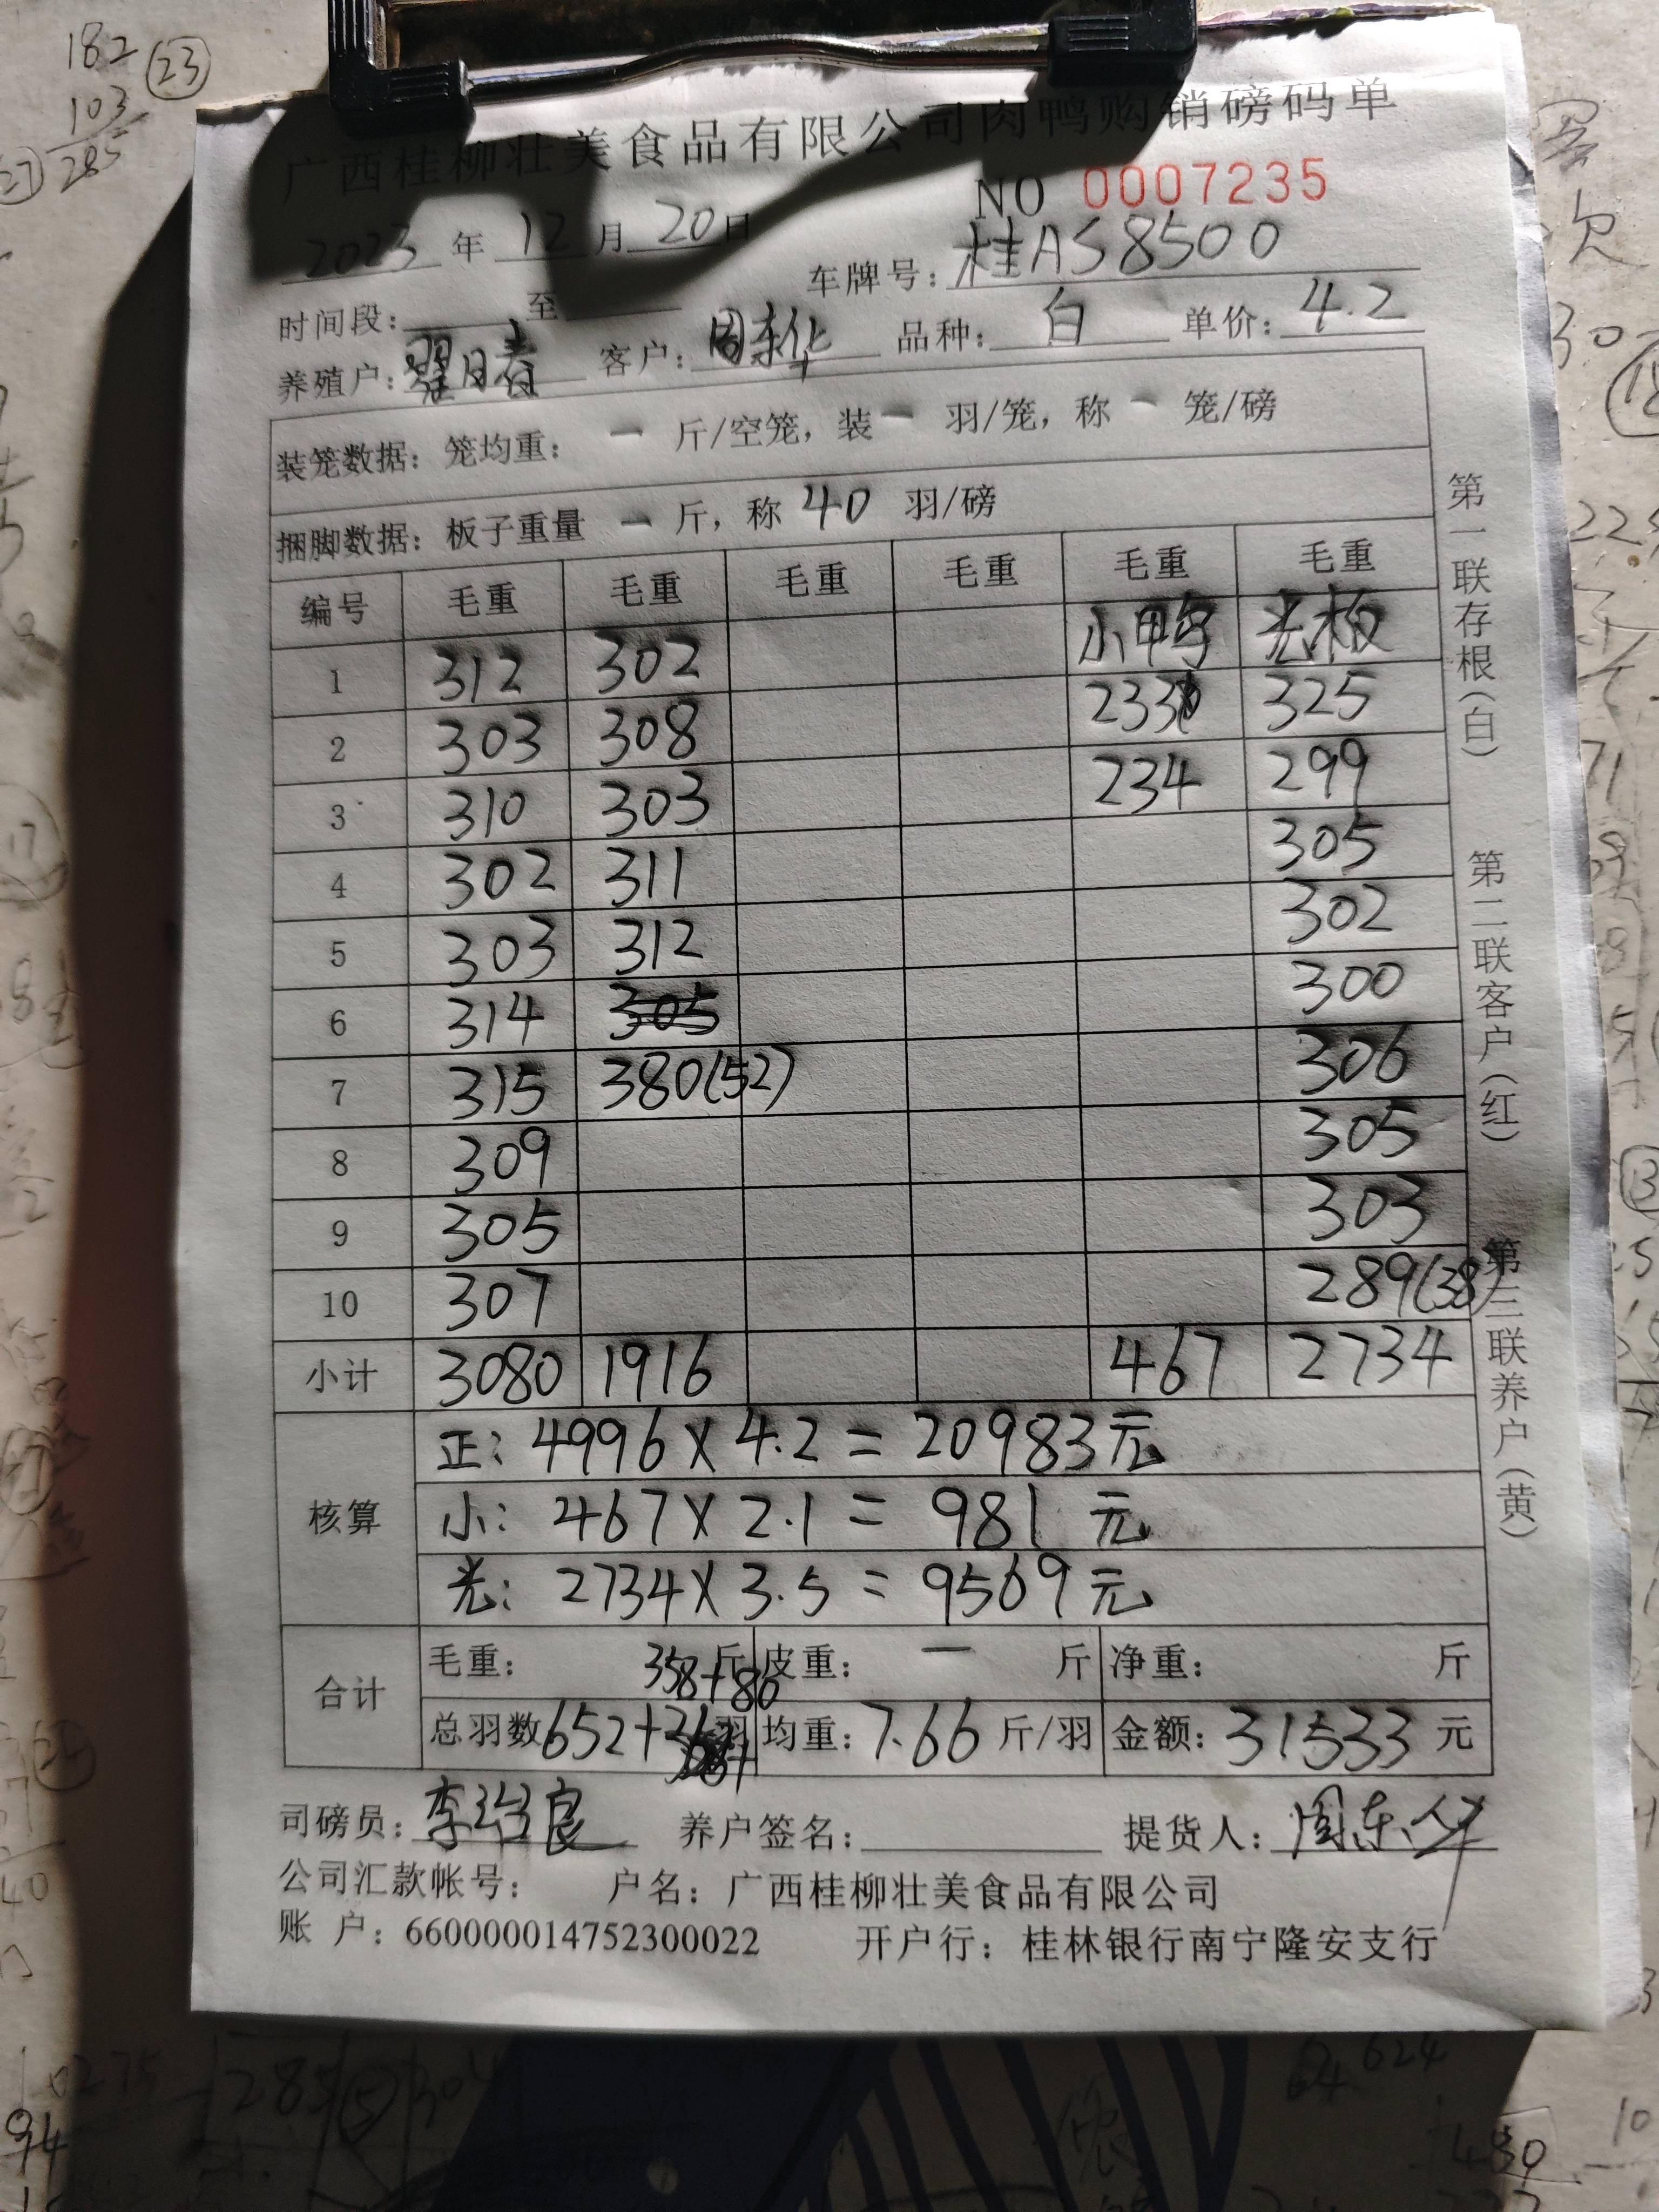 广西桂柳壮美食品有限公司肉鸭购销磅码单
NO 0007235
2023年12月20日
车牌号：桂AS8500
时间段： 至
养殖户：翟月春 客户：周东华 品种：白 单价：4.2
装笼数据：笼均重： 一 斤/空笼，装 一 羽/笼，称 一 笼/磅
捆脚数据：板子重量 一 斤，称 40 羽/磅
编号 毛重 毛重 毛重 毛重 毛重 毛重
1 312 302 小鸭 光板
2 303 308 233 325
3 310 303 234 299
4 302 311 305
5 303 312 302
6 314 305 300
7 315 380(52) 306
8 309 305
9 305 303
10 307 289(38)
小计 3080 1916 467 2734
核算
正：4996X4.2=20983元
小：467X2.1=981元
光：2734X3.5=9569元
合计
毛重： 斤 皮重： 一 斤 净重： 斤
358+80
总羽数652+ 羽 均重：7.66斤/羽 金额：31533元
司磅员：李治良 养户签名： 提货人：周东华
公司汇款帐号： 户名：广西桂柳壮美食品有限公司
账 户：660000014752300022 开户行：桂林银行南宁隆安支行
第一联存根(白)
第二联客户(红)
第三联养户(黄)
182
103
285
23